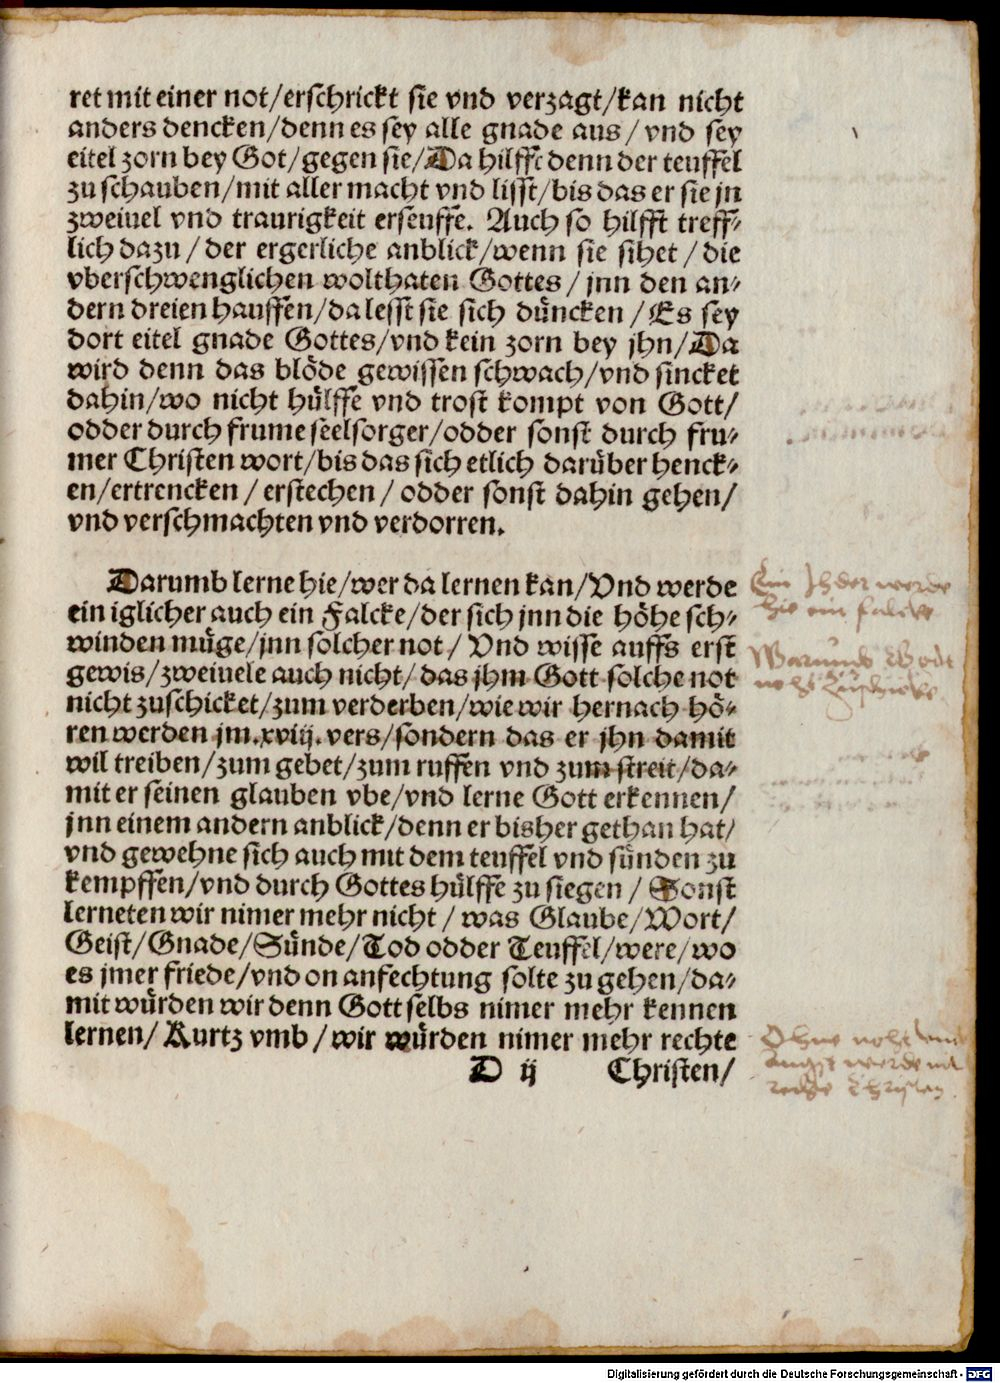 ret mit einer not/erschrickt sie vnd verzagt/kan nicht
anders dencken/denn es sey alle gnade aus/ vnd sey
eitel zorn bey Got/gegen sie/Da hilfft denn der teuffel
zu schauben/mit aller macht vnd lisst/bis das er sie jn
zweiuel vnd traurigkeit erseuffe. Auch so hilfft treff⸗
lich dazu/der ergerliche anblick/wenn sie sihet/die
vberschwenglichen wolthaten Gottes/jnn den an⸗
dern dreien hauffen/da lesst sie sich duͤncken/Es sey
dort eitel gnade Gottes/vnd kein zorn bey jhn/Da
wird denn das bloͤde gewissen schwach/vnd sincket
dahin/wo nicht huͤlffe vnd trost kompt von Gott/
odder durch frume seelsorger/odder sonst durch fru⸗
mer Christen wort/bis das sich etlich daruͤber henck⸗
en/ertrencken/erstechen/odder sonst dahin gehen/
vnd verschmachten vnd verdorren.
Darumb lerne hie/wer da lernen kan/Vnd werde
ein iglicher auch ein Falcke/der sich jnn die hoͤhe sch⸗
winden muͤge/jnn solcher not/Vnd wisse auffs erst
gewis/zweiuele auch nicht/das jhm Gott solche not
nicht zuschicket/zum verderben/wie wir hernach hoͤ⸗
ren werden jm.xviij.vers/sondern das er jhn damit
wil treiben/zum gebet/zum ruffen vnd zum streit/da⸗
mit er seinen glauben vbe/vnd lerne Gott erkennen/
jnn einem andern anblick/denn er bisher gethan hat/
vnd gewehne sich auch mit dem teuffel vnd suͤnden zu
kempffen/vnd durch Gottes huͤlffe zu siegen/Sonst
lerneten wir nimer mehr nicht/was Glaube/Wort/
Geist/Gnade/Suͤnde/Tod odder Teuffel/were/wo
es jmer friede/vnd on anfechtung solte zu gehen/da⸗
mit wuͤrden wir denn Gott selbs nimer mehr kennen
lernen/Kurtz vmb/wir wuͤrden nimer mehr rechte
D ij Christen/
Ein Ihder werde
hie ein falcke
Warumb Gott
noht zuschicke
Ohne noht vnd
angst werde
Christen
Digitalisierung gefördert durch die Deutsche Forschungsgemeinschaft - DFG